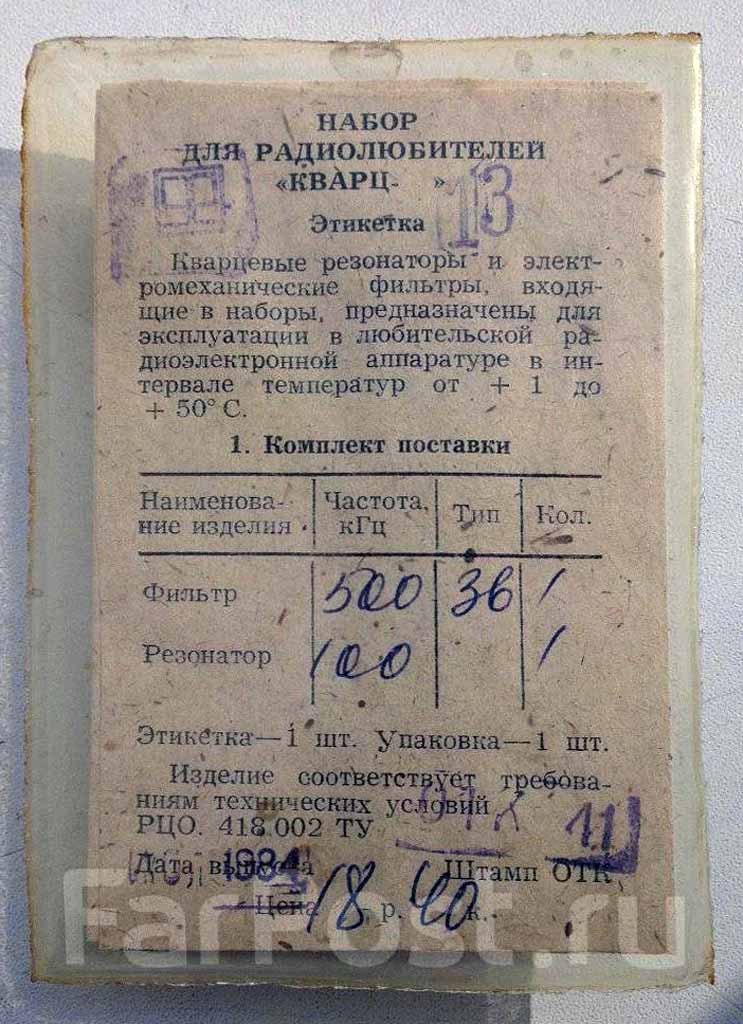 НАБОР
ДЛЯ РАДИОЛЮБИТЕЛЕЙ
«КВАРЦ- 13»
Этикетка
Кварцевые резонаторы и элект-
ромеханические фильтры, входя-
щие в наборы, предназначены для
эксплуатации в любительской ра-
диоэлектронной аппаратуре в ин-
тервале температур от + 1 до
+ 50° С.
1. Комплект поставки
Наименова- Частота, Тип Кол.
ние изделия кГц
Фильтр 500 3в 1
Резонатор 100 1
Этикетка—1 шт. Упаковка—1 шт.
Изделие соответствует требова-
ниям технических условий
РЦО. 418.002 ТУ
11
Дата выпуска 1984 Штамп ОТК
Цена 18 р. 40 к.
FarPost.ru